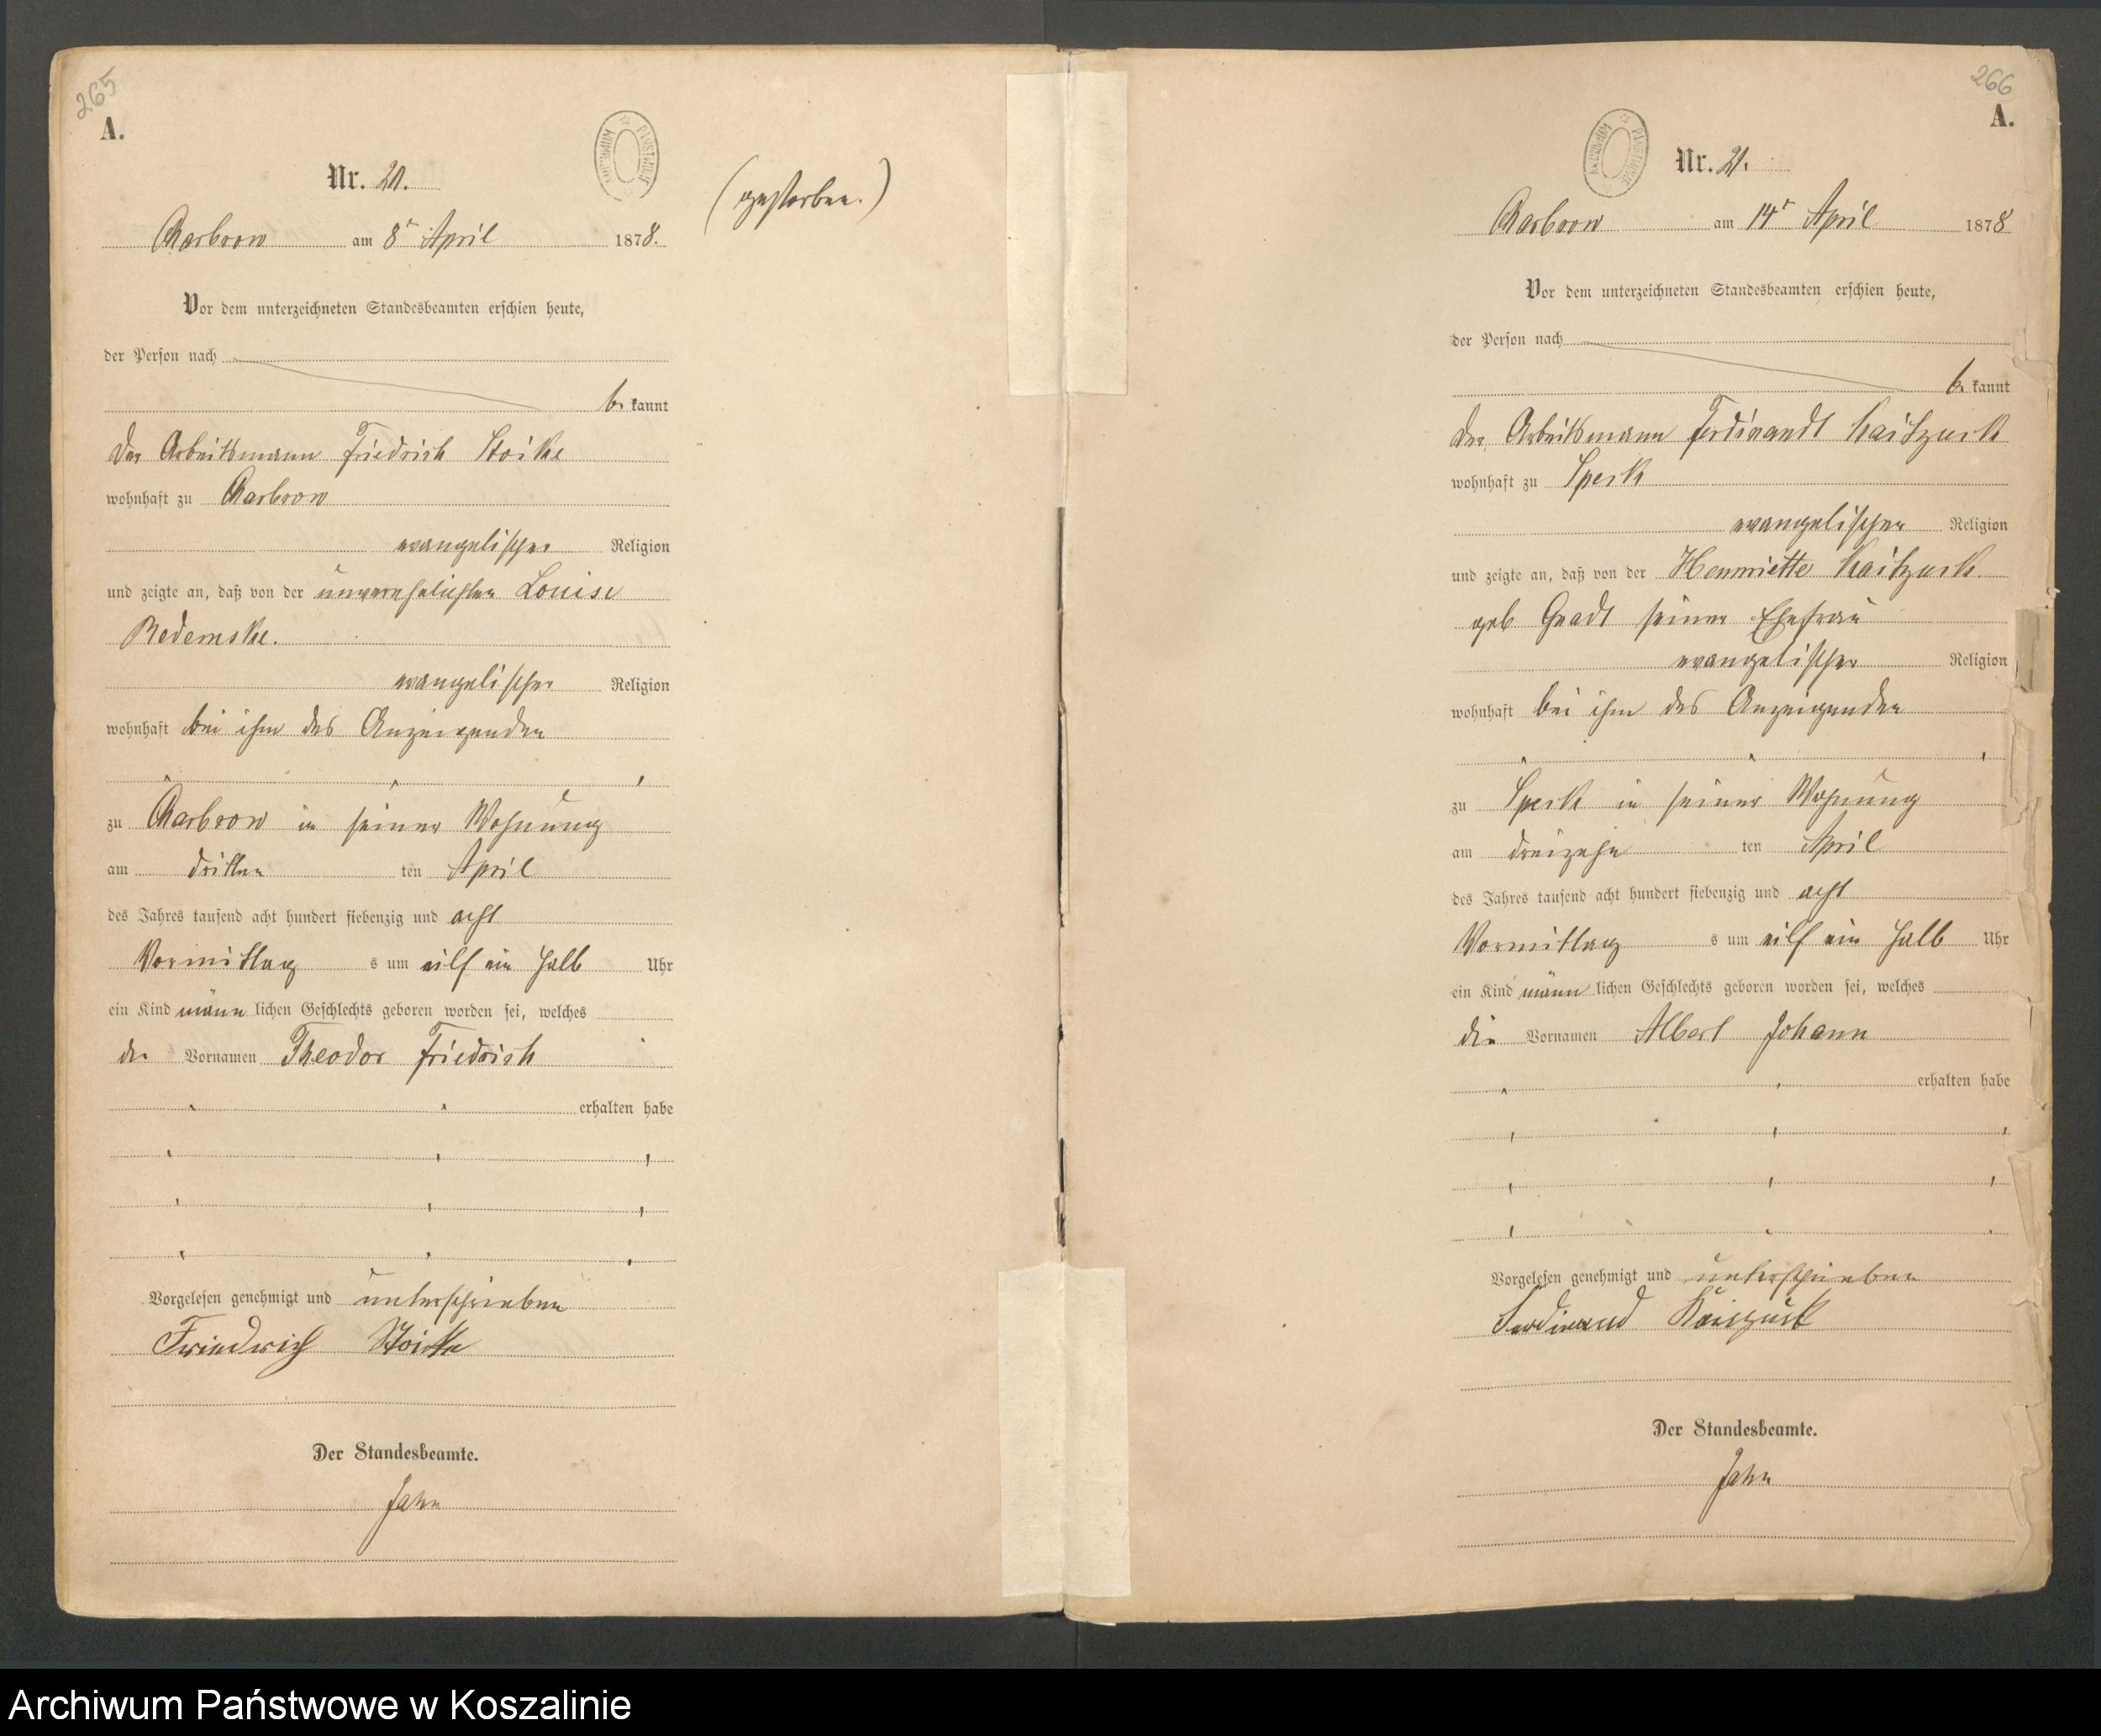 265
A.
Nr. 20.
(gestorben.)
Charbrow am 8t April 1878.
Vor dem unterzeichneten Standesbeamten erschien heute,
der Person nach
be kannt
der Arbeitsmann Friedrich Stoike
wohnhaft zu Charbrow
evangelischer Religion
und zeigte an, daß von der unverehelichten Louise
Redemske.
evangelischer Religion
wohnhaft bei ihm des Anzeigenden
zu Charbrow in seiner Wohnung
am dritten ten April
des Jahres tausend acht hundert siebenzig und acht
Vormittag s um eilf ein halb Uhr
ein Kind männ lichen Geschlechts geboren worden sei, welches
die Vornamen Theodor Friedrich
erhalten habe
Vorgelesen genehmigt und unterschrieben
Friedrich Stoike
Der Standesbeamte.
Jahn
266
A.
Nr. 21.
Charbrow am 14t April 1878
Vor dem unterzeichneten Standesbeamten erschien heute,
der Person nach
be kannt
der Arbeitsmann Ferdinandt Kaitzuck
wohnhaft zu Speck
evangelischer Religion
und zeigte an, daß von der Henriette Kaitzuck
geb Gnadt seiner Ehefrau
evangelischer Religion
wohnhaft bei ihm des Anzeigenden
zu Speck in seiner Wohnung
am dreizehn ten April
des Jahres tausend acht hundert siebenzig und acht
Vormittag s um eilf ein halb Uhr
ein Kind männ lichen Geschlechts geboren worden sei, welches
die Vornamen Albert Johann
erhalten habe
Vorgelesen genehmigt und unterschrieben
Ferdinand Kaizuck
Der Standesbeamte.
Jahn
Archiwum Państwowe w Koszalinie